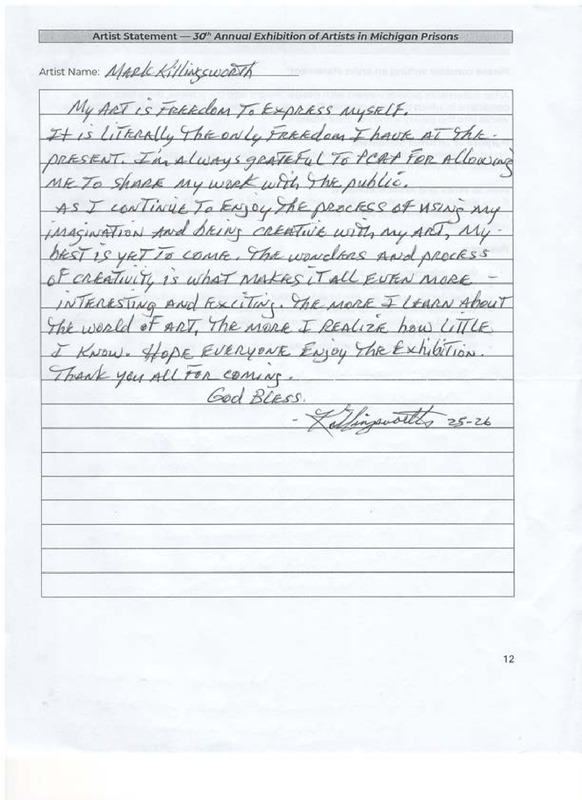 Artist Statement — 30th Annual Exhibition of Artists in Michigan Prisons
Artist Name: Mark Killingsworth
My ART is FREEDOM TO EXPRESS MYSELF.
IT is LITERALLY THE ONLY FREEDOM I HAVE AT THE -
PRESENT. I'm ALWAYS GRATEFUL TO PCAP FOR Allowing
ME TO SHARE MY WORK WITH THE public.
AS I CONTINUE TO ENJOY THE PROCESS OF USING MY
IMAGINATION AND BEING CREATIVE WITH MY ART, MY -
BEST IS YET TO COME. THE WONDERS AND PROCESS
OF CREATIVITY IS WHAT MAKES IT ALL EVEN MORE -
INTERESTING AND EXCITING. THE MORE I LEARN About
THE WORLD OF ART, THE MORE I REALIZE how LITTLE
I KNOW. HOPE EVERYONE ENJOY THE EXHIBITION.
THANK YOU ALL FOR COMING.
God BLESS.
- Killingsworth 25-26
12